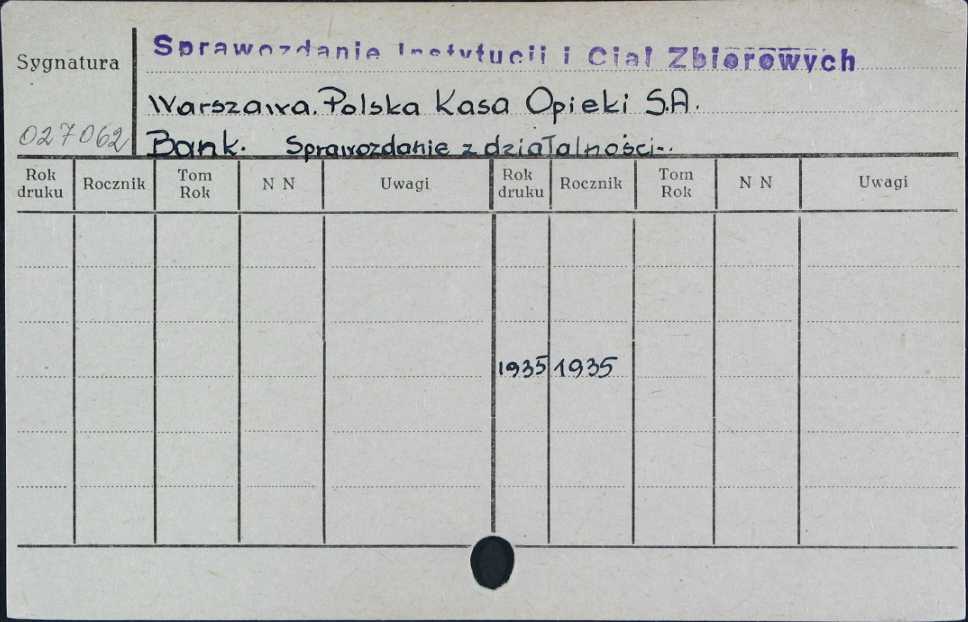 Sprawozdanie Instytucji i Ciał Zbiorowych
Sygnatura
Warszawa. Polska Kasa Opieki S.A.
027062
Bank. Sprawozdanie z działalności-.
Rok druku Rocznik Tom Rok N N Uwagi Rok druku Rocznik Tom Rok N N Uwagi
1935 1935